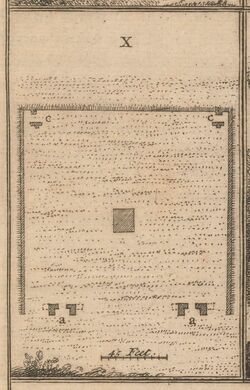 X
c c
a a
45 Feet